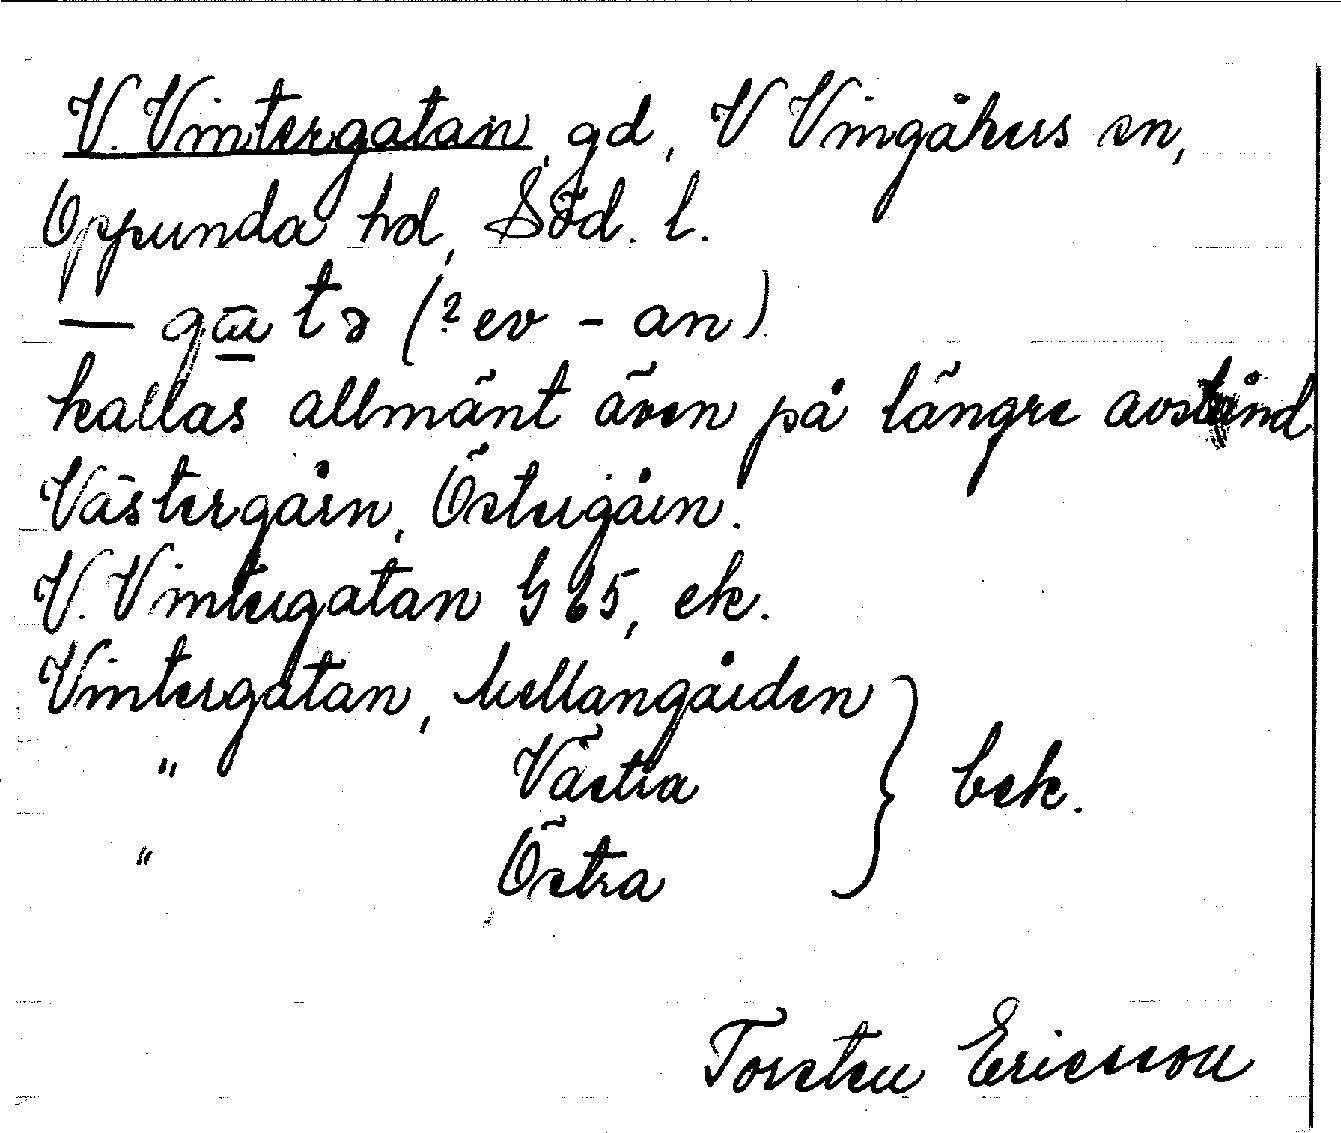 V. Vintergatan, gd, V Vingåkers sn,
Oppunda hd, Söd. l.
— gɑ̄tə (? ev - an)
kallas allmänt även på längre avstånd
Västergårn, Östergårn.
V. Vintergatan G 65, ek.
Vintergatan, Mellangården
" Västra } bek.
" Östra
Torsten Ericsson